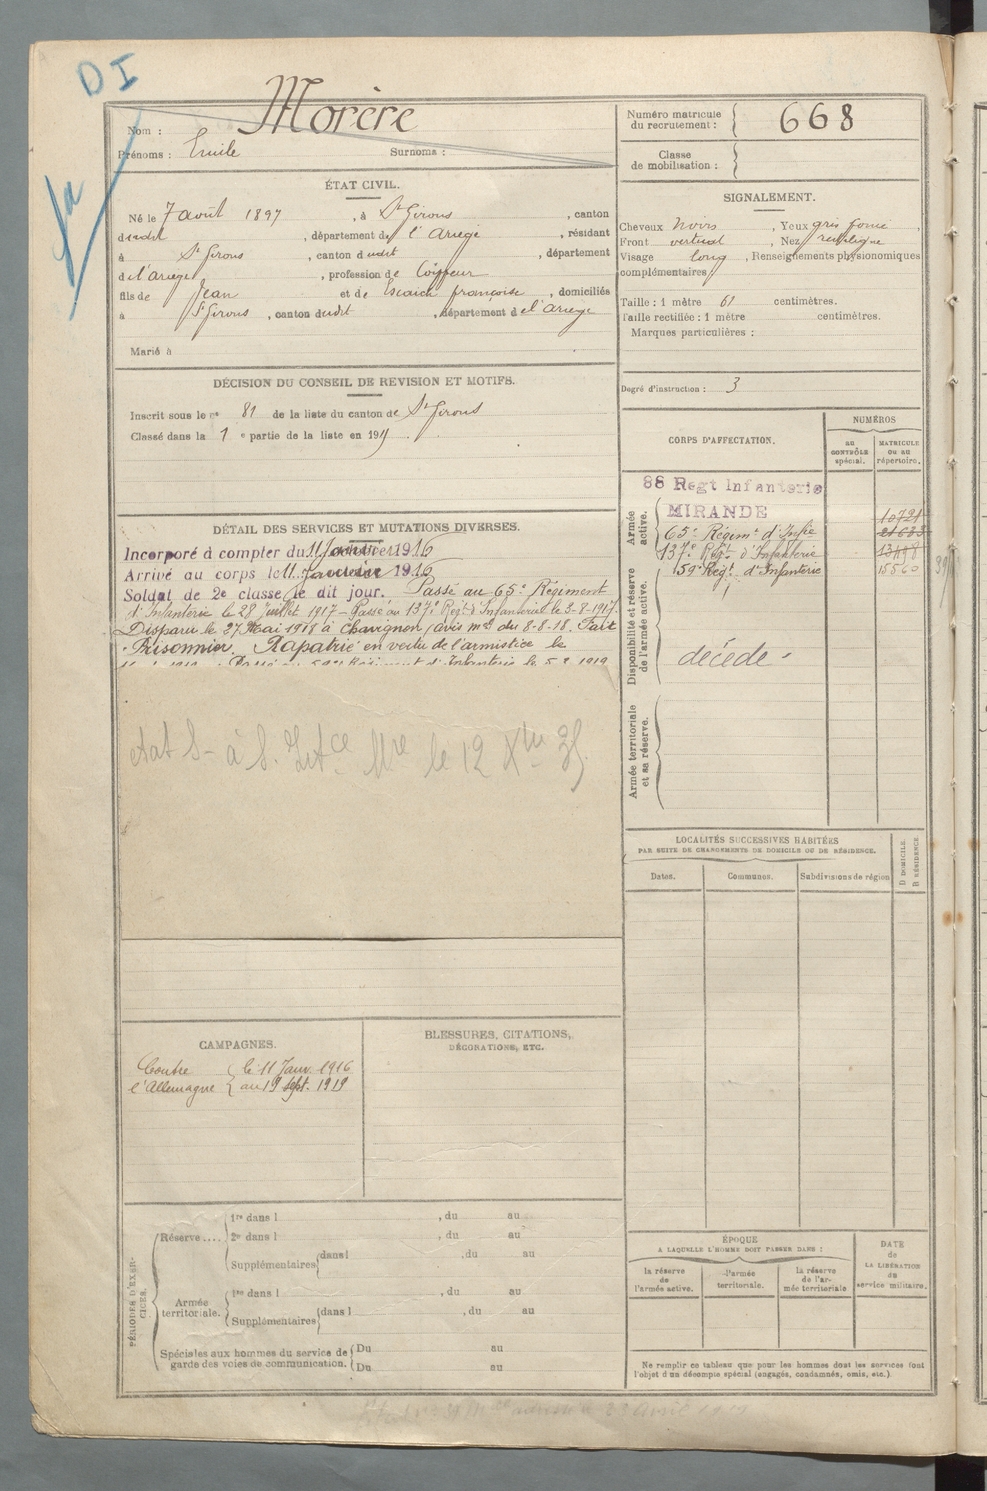 DI
Nom : Morère
Prénoms : Emile Surnoms :
Numéro matricule du recrutement : 668
Classe de mobilisation :
ÉTAT CIVIL.
Né le 7 août 1897, à St Girons, canton
dudit, département de l'Ariège, résidant
à St Girons, canton dudit, département
de l'Ariège, profession de Coiffeur
fils de Jean et de Escaich françoise, domiciliés
à St Girons, canton dudit, département de l'Ariège
Marié à
SIGNALEMENT.
Cheveux noirs, Yeux gris foncé,
Front vertical, Nez rectiligne
Visage long, Renseignements physionomiques
complémentaires
Taille : 1 mètre 61 centimètres.
Taille rectifiée : 1 mètre centimètres.
Marques particulières :
Degré d'instruction : 3
DÉCISION DU CONSEIL DE REVISION ET MOTIFS.
Inscrit sous le n° 81 de la liste du canton de St Girons
Classé dans la 1 e partie de la liste en 191
DÉTAIL DES SERVICES ET MUTATIONS DIVERSES.
Incorporé à compter du 11 Janvier 1916
Arrivé au corps le 11 1916
Soldat de 2e classe le dit jour. Passé au 65e Régiment
d'Infanterie le 28 Juillet 1917 – Passé au 137e Régt d'Infanterie le 3-8-1917.
Disparu le 27 Mai 1918 à Chavignon (avis ml du 8-8-18. Fait
Prisonnier. Rapatrié en vertu de l'armistice le
Régiment d'Infanterie le 5 1919
état S- à S. le 12
CORPS D'AFFECTATION.
NUMÉROS
au CONTRÔLE spécial.
MATRICULE ou au répertoire.
Armée active.
88 Regt Infanterie
MIRANDE 10721
65e Régimt d'Infie
137e Régt d'Infanterie
159e Régt d'Infanterie 15560
Disponibilité et réserve de l'armée active.
décédé -
Armée territoriale et sa réserve.
LOCALITÉS SUCCESSIVES HABITÉES
PAR SUITE DE CHANGEMENTS DE DOMICILE OU DE RÉSIDENCE.
Dates. Communes. Subdivisions de région
D DOMICILE. R RÉSIDENCE.
CAMPAGNES.
Contre l'Allemagne
le 11 Janv. 1916
au 19 sept. 1919
BLESSURES, CITATIONS,
DÉCORATIONS, ETC.
PÉRIODES D'EXERCICES.
Réserve....
1re dans l , du au
2e dans l , du au
Supplémentaires dans l , du au
Armée territoriale.
1re dans l , du au
Supplémentaires dans l , du au
Spéciales aux hommes du service de garde des voies de communication.
Du au
Du au
ÉPOQUE
A LAQUELLE L'HOMME DOIT PASSER DANS :
la réserve de l'armée active.
l'armée territoriale.
la réserve de l'armée territoriale
DATE de LA LIBÉRATION du service militaire.
Ne remplir ce tableau que pour les hommes dont les services font
l'objet d'un décompte spécial (engagés, condamnés, omis, etc.)